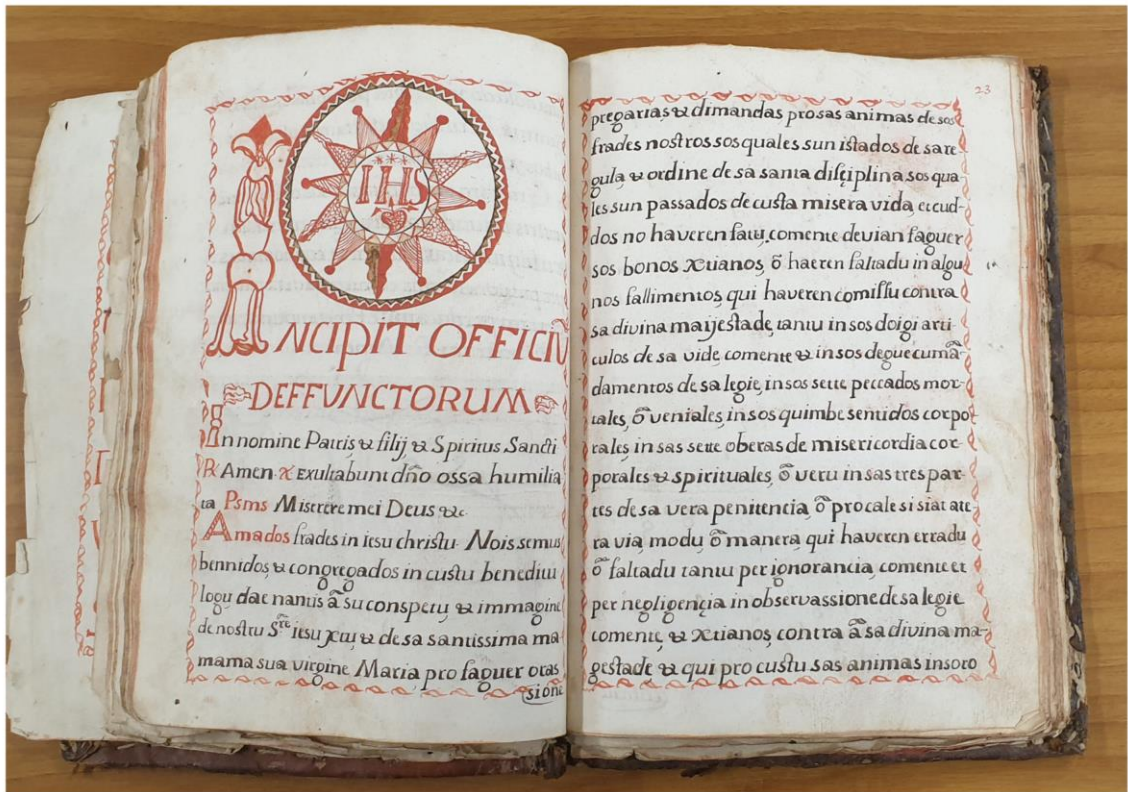 IHS
INCIPIT OFFICIŨ
DEFFUNCTORUM
In nomine Patris & filij & Spiritus Sancti
R Amen. Exultabunt dño ossa humilia
ta Psms Miserere mei Deus &c
Amados frades in iesu christu. Nois semus
bennidos, & congregados in custu benedittu
logu dae nantis â su conspettu & immagine
de nostru Sre iesu xtu, & de sa santissima ma
mama sua virgine Maria pro faguer oras
sione
23
pregarias & dimandas pro sas animas de sos
frades nostros sos quales sun istados de sa re-
gula & ordine de sa santa disciplina sos qua
les sun passados de custa misera vida, et cud-
dos no haveren fattu, comente devian faguer
sos bonos Xtianos, õ haeren faltadu in algu
nos fallimentos, qui haveren comissu contra
sa divina mayjestade, tantu in sos doigi arti
culos de sa vide comente & in sos degue cumã-
damentos de sa legie, in sos sette peccados mor-
tales, õ veniales, in sos quimbe sentidos corpo
rales in sas sette oberas de misericordia cor-
porales & spirituales, õ veru in sas tres par-
tes de sa vera penitencia, õ pro cale si siat att
ra via, modu õ manera, qui haveren erradu
õ faltadu tantu per ignorancia, comente et
per negligençia in observassione de sa legie
comente, & Xtianos, contra â sa divina ma-
gestade & qui pro custu sas animas insoro